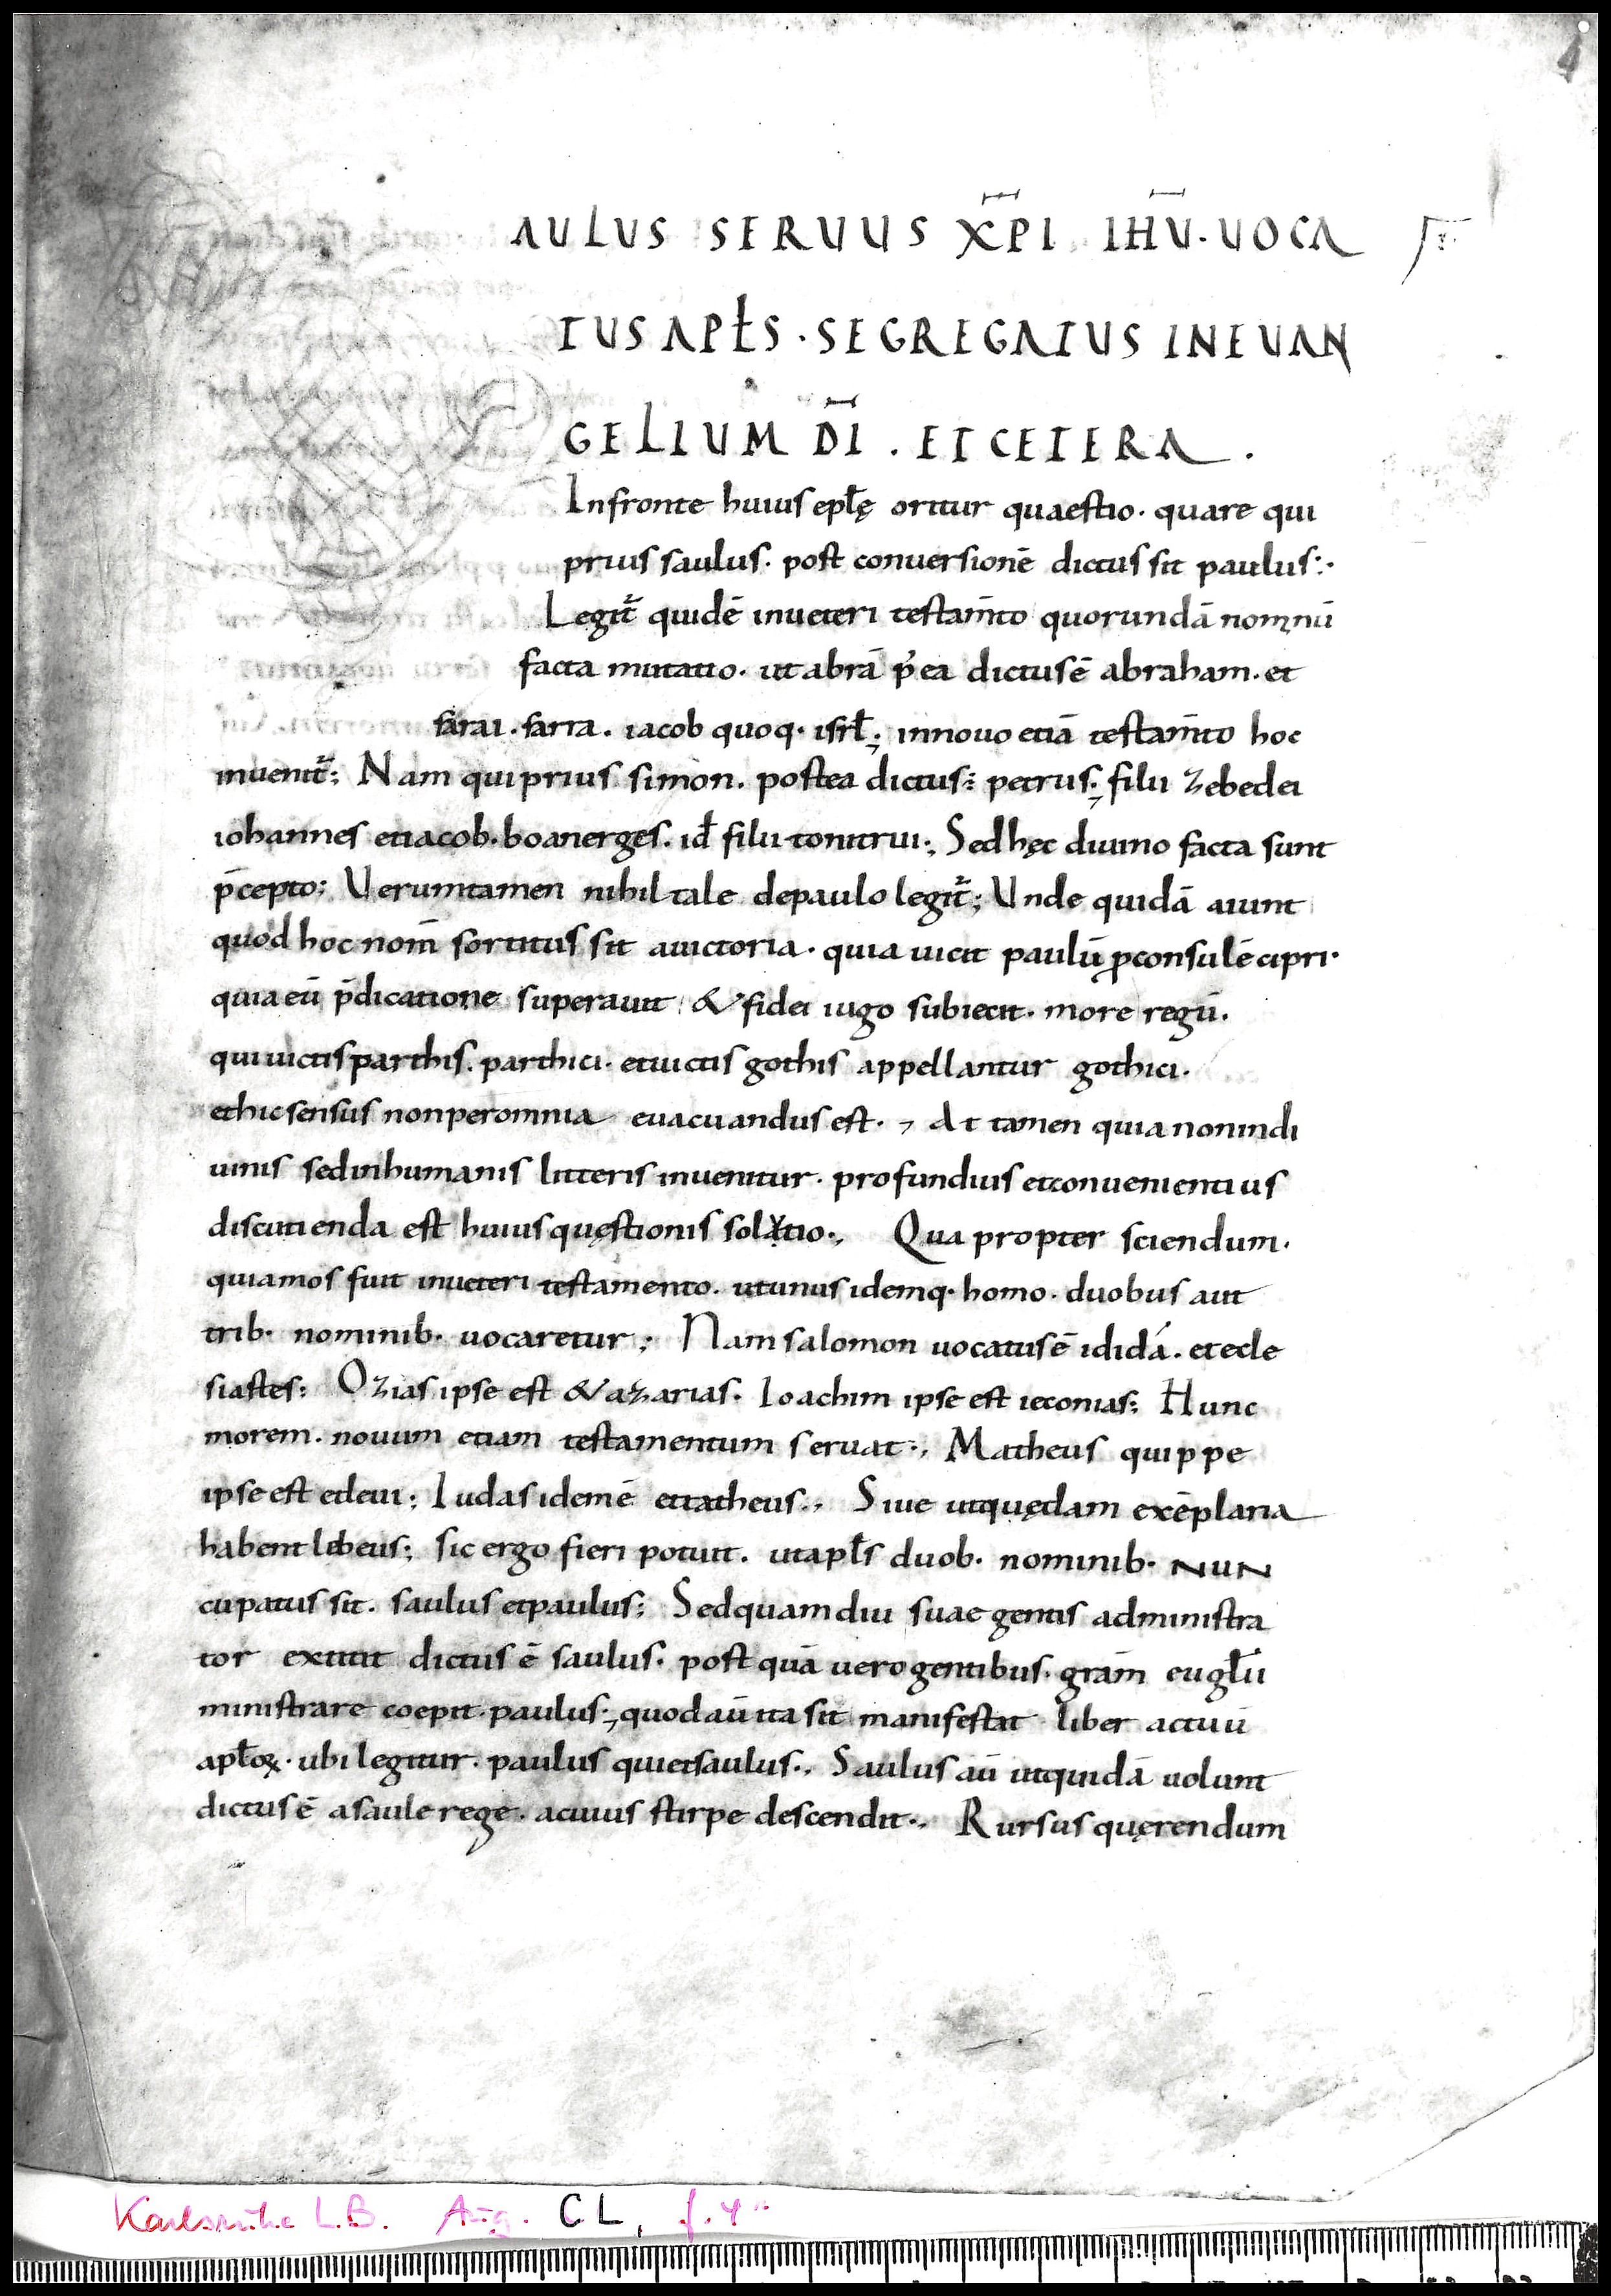 4
AULUS SERUUS X̅P̅I̅ IH̅U̅·UOCA
TUS APŁS·SEGREGATUS IN EUAN
GELIUM D̅I̅. ET CETERA.
In fronte huius epłę oritur quaestio· quare qui
prius saulus· post conuersionē dictus sit paulus:·
Legit̄ quidē in ueteri testam̄to quorundā nominū
facta mutatio· ut abrā p̄ ea dictus ē abraham· et
sarai· sarra. iacob quoq· isrł; in nouo etiā testam̄to hoc
inuenit̄; Nam qui prius simon· postea dictus: petrus; filii zebedei
iohannes et iacob· boanerges· id̄ filii tonitrui:, Sed hęc diuino facta sunt
p̄cepto; Uerumtamen nihil tale de paulo legit̄; Unde quidā aiunt
quod hoc nom̄ sortitus sit a uictoria· quia uicit paulū ꝓconsulē cipri·
quia eū p̄dicatione superauit & fidei iugo subiecit· more regū·
qui uictis parthis· parthici· et uictis gothis appellantur gothici·
et hic sensus non per omnia euacuandus est·, At tamen quia non in di
uinis sed in humanis litteris inuenitur· profundius et conuenientius
discutienda est huius quęstionis solutio·, Qua propter sciendum·
quia mos fuit in ueteri testamento· ut unus idemq· homo· duobus aut
trib· nominib· uocaretur; Nam salomon uocatus ē ididá· et ecle
siastes; Ozias ipse est & azarias· Ioachim ipse est ieconias; Hunc
morem· nouum etiam testamentum seruat·, Matheus quippe
ipse est et leui; Iudas idem ē et tatheus·, Siue ut quędam exēplaria
habent lebeus; sic ergo fieri potuit· ut apłs duob· nominib· NUN
cupatus sit· saulus et paulus; Sed quam diu suae gentis administra
tor extitit dictus ē saulus· post quā uero gentibus· gram̄ eugłii
ministrare coepit· paulus·, quod aū ita sit manifestat liber actuū
apłoꝝ· ubi legitur· paulus qui et saulus·, Saulus aū ut quidā uolunt
dictus ē a saule rege· a cuius stirpe descendit·, Rursus quęrendum
Karlsruhe L.B. Aug. CL, f. 4r